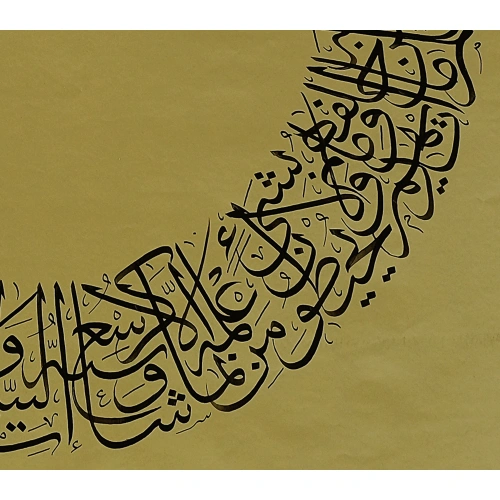 أيديهم وما خلفهم ولا يحيطون بشيء من علمه إلا بما شاء وسع كرسيه السموات و